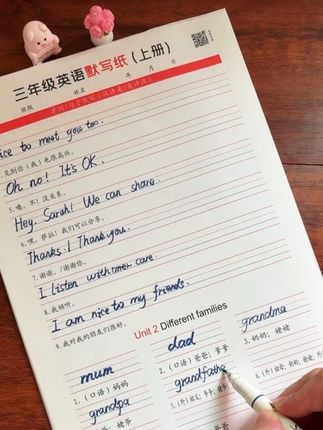 三年级英语默写纸(上册)
班级 姓名 年 月 日
单词/句子默写(汉译英/英译汉)
ice to meet you too.
见到你(我)也很高兴。
Oh no! It's OK.
5.噢,不!没关系。
Hey, Sarah! We can share.
6.嘿,萨拉!我们可以分享。
Thanks! Thank you.
7.谢谢。/谢谢你。
I listen with care.
8.我倾听。
I am nice to my friends.
9.我对我的朋友们很好。
Unit 2 Different families
mum dad grandma
1.(口语)妈妈 2.(口语)爸爸,爹爹 3.奶奶;姥姥
grandpa grandfathe